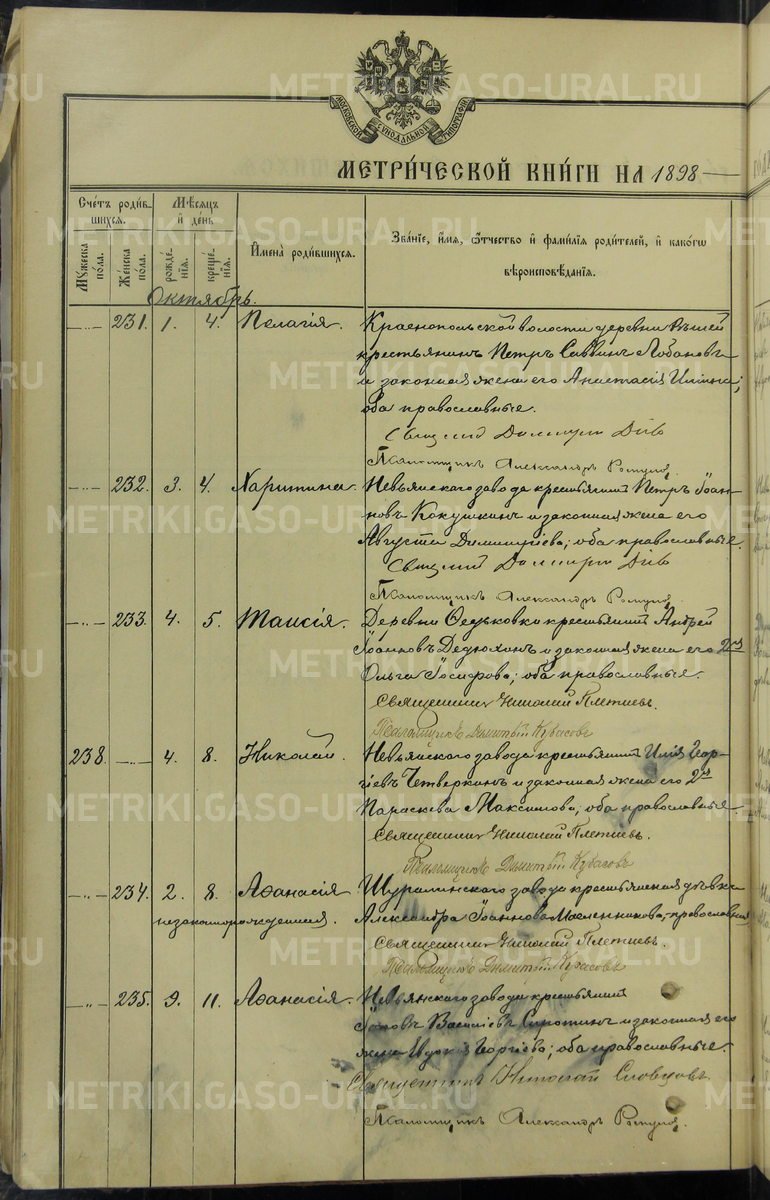 METRIKI.GASO-URAL.RU
МОСКОВСКОЙ СѴНОДАЛЬНОЙ ТИПОГРАФІИ
МЕТРИ́ЧЕСКОЙ КНИ́ГИ НА 1898
Сче́тъ роди́в-
шихся.
Мꙋ́жеска
по́ла.
Же́нска
по́ла.
М҄ѣсяцъ
и҆ де́нь
рожде́-
нїя.
креще́-
нїя.
И҆мена̀ роди́вшихся.
Зва́нїе, и҆́мя, ѻ҆́тчество и҆ фами́лїя роди́телей, и҆ како́гѡ
вѣроисповѣ́данїя.
Октябрь.
231. 1. 4. Пелагія. Краснопольской волости деревни Вѣшей
крестьянинъ Петръ Саввинъ Лобановъ
и законная жена его Анастасія Ильина;
оба православные.
Священ
Псаломщикъ Александръ
232. 3. 4. Харитина. Невьянскаго завода крестьянинъ Петръ Іоан-
новъ Кокушкинъ и законная жена его
Августа Димитріева; оба православные.
Священ
Псаломщикъ Александръ
233. 4. 5. Таисія. Деревни Ѳедьковки крестьянинъ Андрей
Іоанновъ Дедюхинъ и законная жена его 2го
Ольга Іосифова; оба православные.
Священникъ Николай Плетневъ.
Псаломщикъ Димитрій Кубасовъ
238. 4. 8. Николай. Невьянскаго завода крестьянинъ Илія Геор-
гіевъ Четверкинъ и законная жена его 2го
Параскева Максимова; оба православные.
Священникъ Николай Плетневъ.
Псаломщикъ Димитрій Кубасовъ
234. 2. 8. Аѳанасія Шуралинскаго завода крестьянская дѣвка
незаконнорожденная. Александра Іоаннова Масленникова, православная
Священникъ Николай Плетневъ.
Псаломщикъ Димитрій Кубасовъ
235. 9. 11. Аѳанасія. Невьянскаго завода крестьянинъ
Іаковъ Василіевъ Сиротинъ и законная его
жена Евдокія Георгіева; оба православные.
Священникъ Николай Словцовъ
Псаломщикъ Александръ